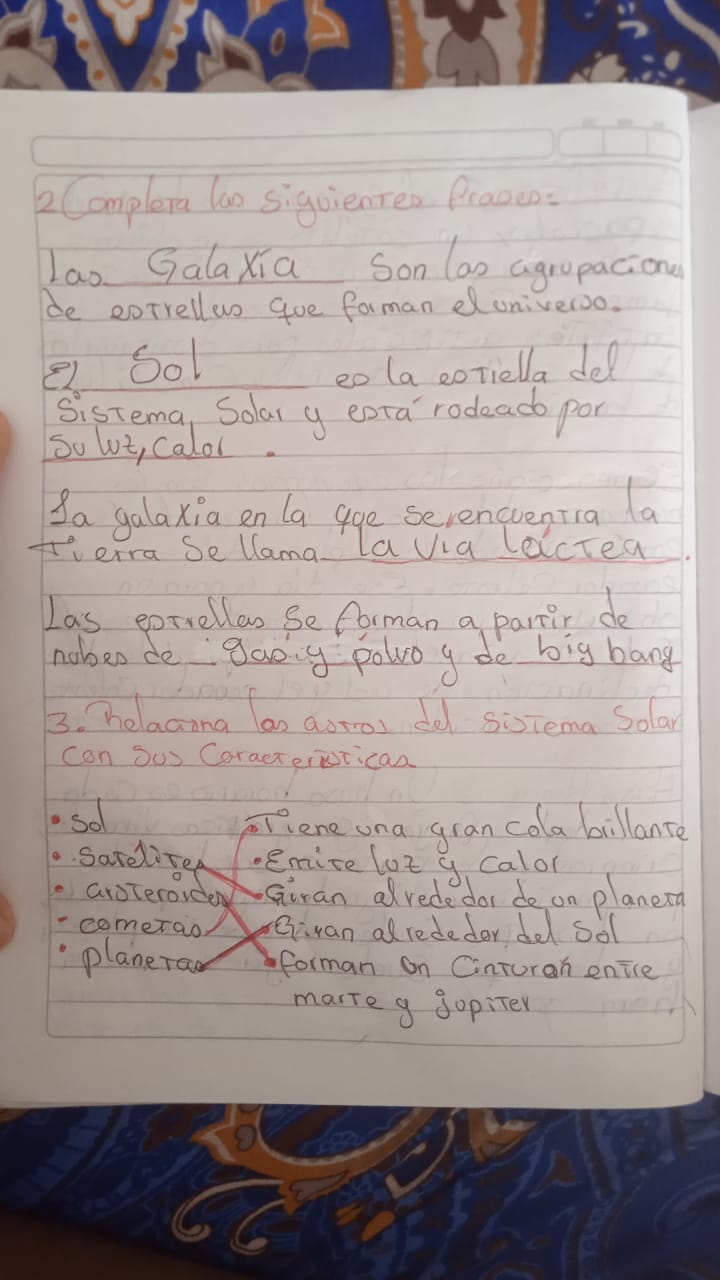 2 Completa las siguientes frases:
Las Galaxía Son las agrupaciones
de estrellas que forman el universo.
El Sol es la estrella del
Sistema Solar y está rodeado por
Su luz, Calor.
La galaxia en la que se encuentra la
tierra Se llama la Via Laáctea.
Las estrellas se forman a partir de
nubes de gas y polvo y de big bang
3. Relaciona las astros del sistema Solar
con sus Características
• sol
• Satelites
• asteroides
• cometas
• planetas
• Tiene una gran cola brillante
• Emite luz y calor
• Giran alrededor de un planeta
• Giran alrededor del Sol
• forman un Cinturon entre
marte y jupiter